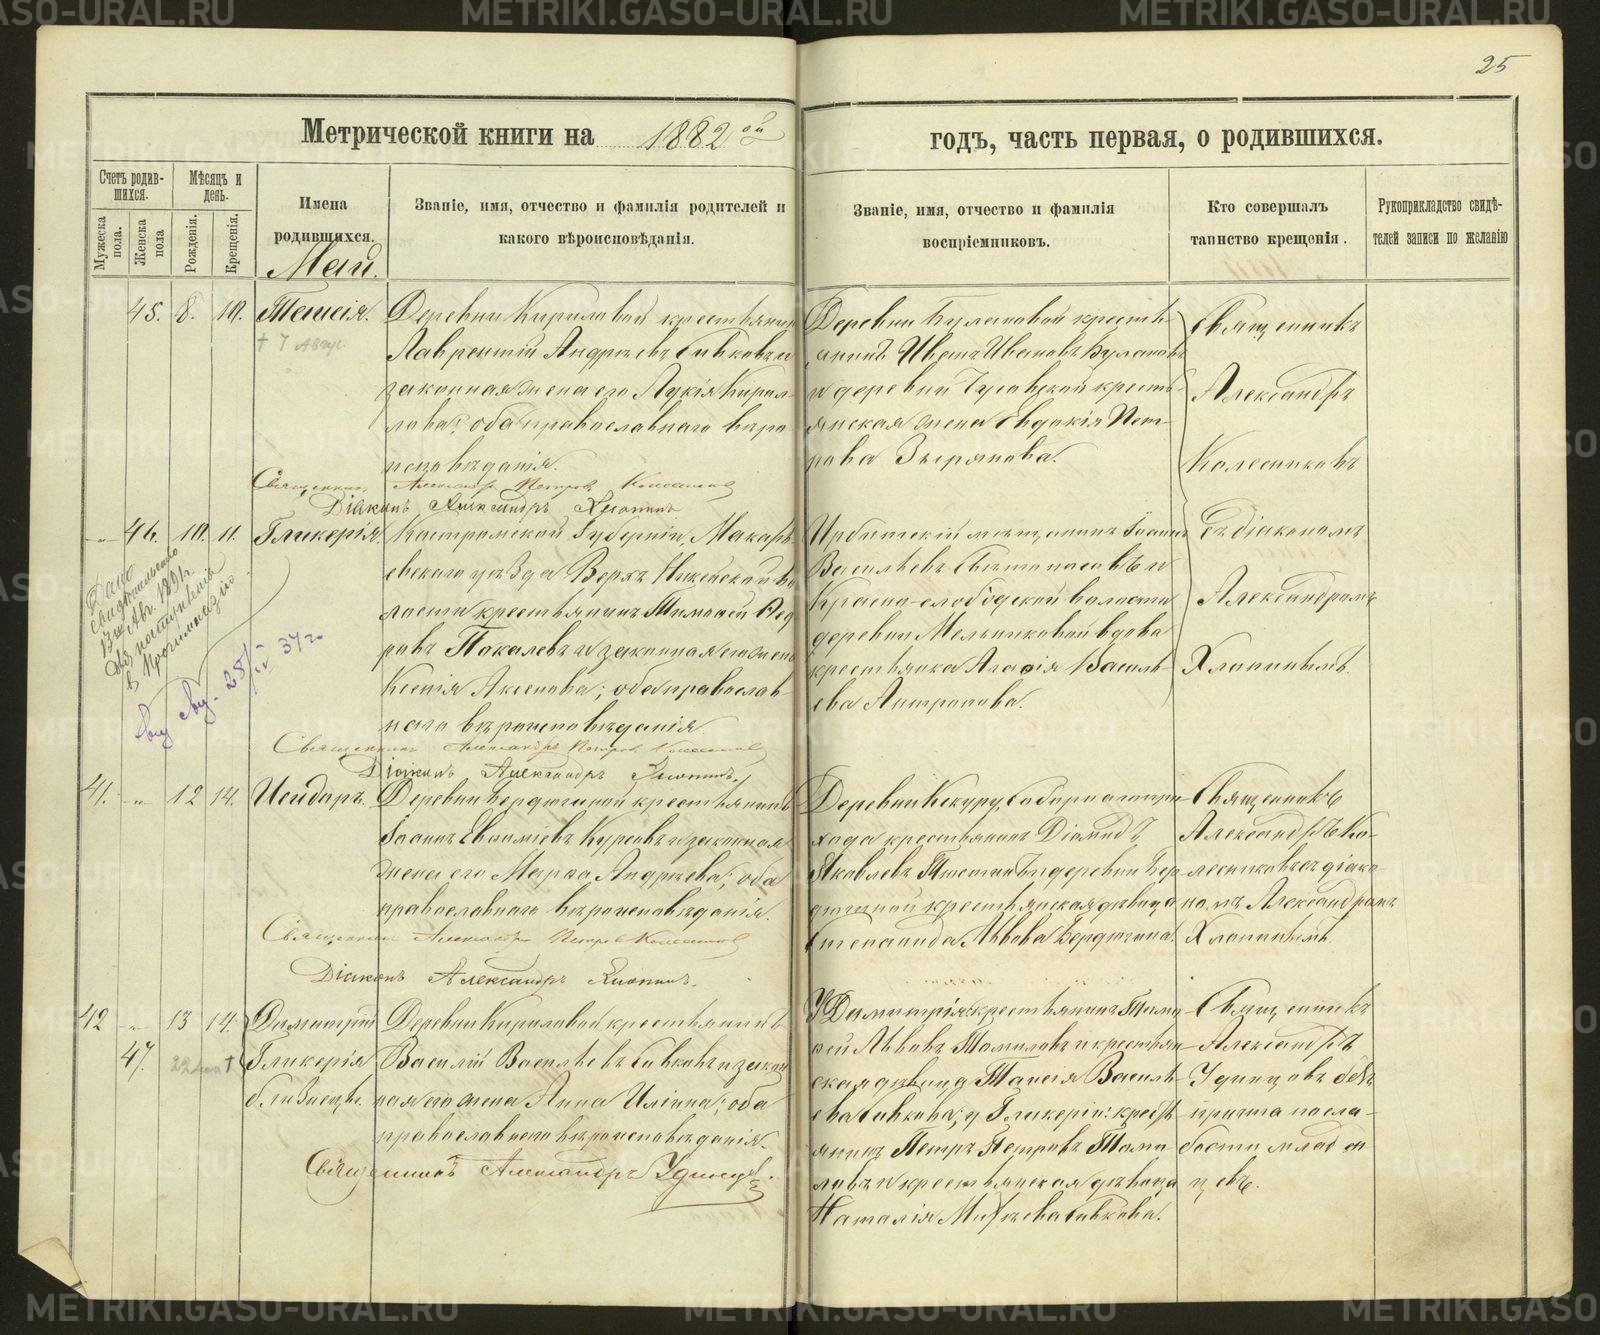 METRIKI.GASO-URAL.RU
25
Метрической книги на 1882 ой
годъ, часть первая, о родившихся.
Счетъ родив-
шихся.
Мѣсяцъ и
день.
Мужеска
пола.
Женска
пола
Рожденія.
Крещенія.
Имена
родившихся.
Званіе, имя, отчество и фамилія родителей и
какого вѣроисповѣданія.
Званіе, имя, отчество и фамилія
воспріемниковъ.
Кто совершалъ
таинство крещенія.
Рукоприкладство свидѣ-
телей записи по желанію
Май.
45. 8. 10. Таисія.
† 7 Авгус.
Деревни Кириловой крестьянинъ
Лаврентій Андреевъ Сивковъ и
законная жена его Лукія Кирил-
лова; оба православнаго вѣро
исповѣданія.
Священникъ Александръ Петровъ Колесниковъ
Діаконъ Александръ Хлопинъ
Деревни Кулаковой кресть-
янинъ Иванъ Ивановъ Кулаковъ
и деревни Чусовской кресть-
янская жена Евдокія Пет-
рова Зырянова.
Священникъ
Александръ
Колесниковъ
съ діакономъ
Александромъ
Хлопинымъ.
46. 10. 11. Гликерія.
Костромской Губерніи, Макарь-
евскаго уѣзда Верхъ Нижейской во
лости крестьянинъ Тимофей Ѳед
ровъ Покалевъ и законная его жена
Ксенія Аксенова; оба православ-
наго вѣроисповѣданія.
Священникъ Александръ Петровъ Колесниковъ
Діаконъ Александръ Хлопинъ.
Ирбитскій мѣщанинъ Іоаннъ
Васильевъ и
Красно-слободской волости
деревни Мельниковой вдова
крестьянка Агафія Василь-
ева Антропова.
Дано
свидѣтельство
13го Авг. 1891 г.
для поступленія
въ Прогимназію
28/IV 37 г.
41. 12 14. Исидоръ.
Деревни Бердюгиной крестьянинъ
Іоаннъ Евфиміевъ Курсовъ и законная
жена его Марѳа Андреева; оба
православнаго вѣроисповѣданія.
Священникъ Александръ Петровъ Колесниковъ
Діаконъ Александръ Хлопинъ.
Деревни Кекуру
хода крестьянинъ Діомидъ
Яковлевъ и деревни Бер
дюгиной крестьянская дѣвица
Степанида Львова Бердюгина.
Священникъ
Александръ Ко-
лесниковъ съ діако
номъ Александромъ
Хлопинымъ.
42 13 14. Димитрій
47. Гликерія
близнецы.
22 мая †
Деревни Кириловой крестьянинъ
Василій Васильевъ Сивковъ и закон
ная его жена Анна Ильина; оба
православнаго вѣроисповѣданія.
Священникъ Александръ Удинцевъ.
У Димитрія: крестьянинъ Тимо
фей Львовъ Томиловъ и крестьян
ская дѣвица Таисія Василь-
ева Сивкова; у Гликеріи: кресть
янинъ Петръ Петровъ Томи-
ловъ и крестьянская дѣвица
Наталія Михѣева Сивкова.
Священникъ
Александръ
Удинцовъ безъ
причта по сла-
бости младен
цевъ.